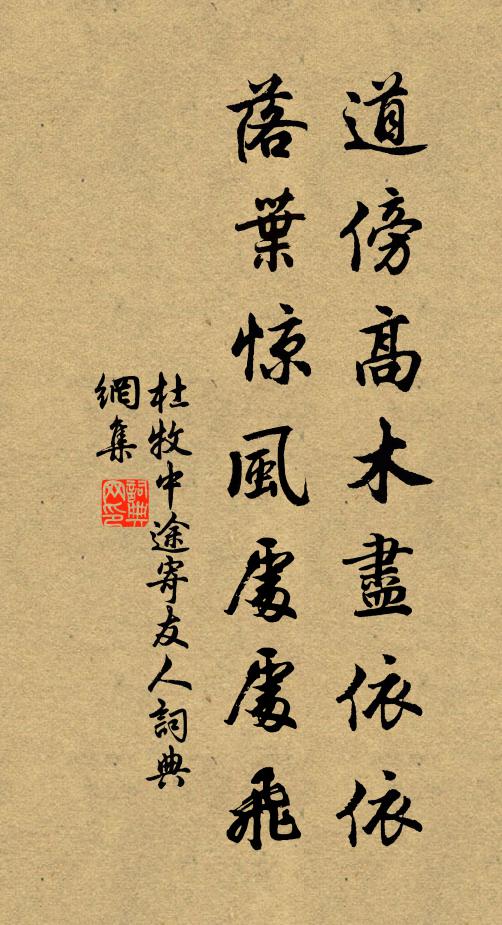 道傍高木盡依依
落葉惊風處處飛
杜牧中途寄友人詞典
網集
詞典網印